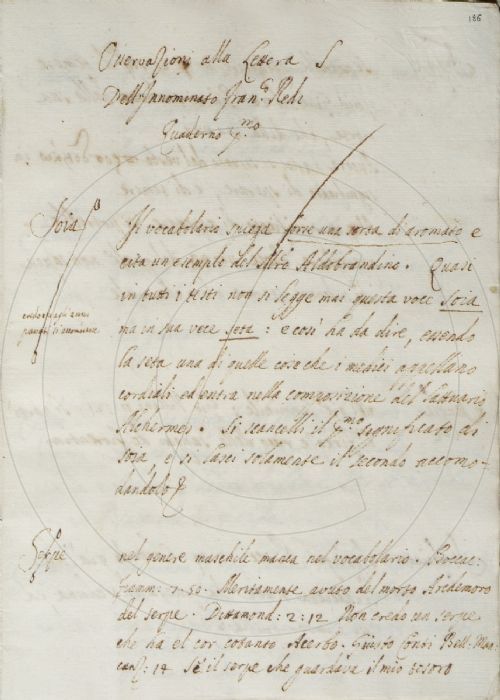 186
Osservazioni alla Lettera S
Dell'Innominato Fran.º Redi
Quaderno p.mo
Soia
Il vocabolario spiega forse una sorta di aromato e
cita un esempio del libro Aldobrandino. Quasi
in tutti i testi non si legge mai questa voce soia
ma in sua vece seta: e così ha da dire, essendo
la seta una di quelle cose che i medici appellano
cordiali ed entra nella composizione del lattuario
Alchermes. Si scancelli il p.mo significato di
soia e si lasci solamente il secondo accomo-
dandolo
Serpe
nel genere maschile manca nel vocabolario. Boccac.
Fiamm. 7. 50. Meritamente avuto del morto Archemoro
del serpe. Dittamond. 2:12 Non credo un serpe
che ha el cor cotanto Acerbo. Giusto Conti Bell. Man.
canz. 14 Sé il serpe che guardava il mio tesoro